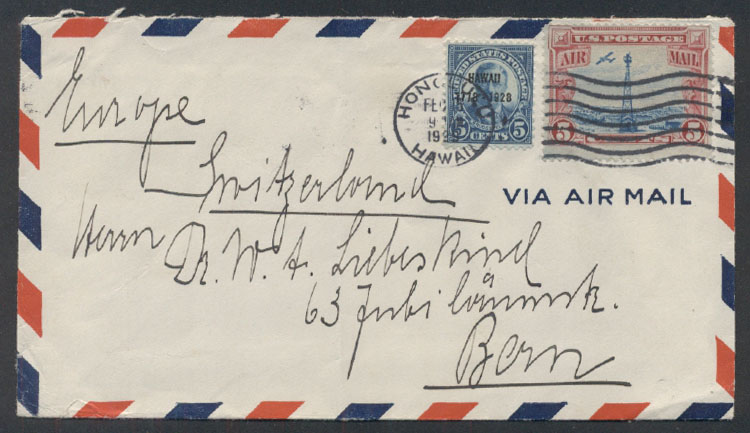 U.S. POSTAGE
AIR MAIL
5 5
UNITED STATES POSTAGE
HAWAII
1778 - 1928
5 CENTS 5
FEB
HAWAII
Europe
Switzerland
VIA AIR MAIL
Herrn Dr. W. A. Liebeskind
63
Bern